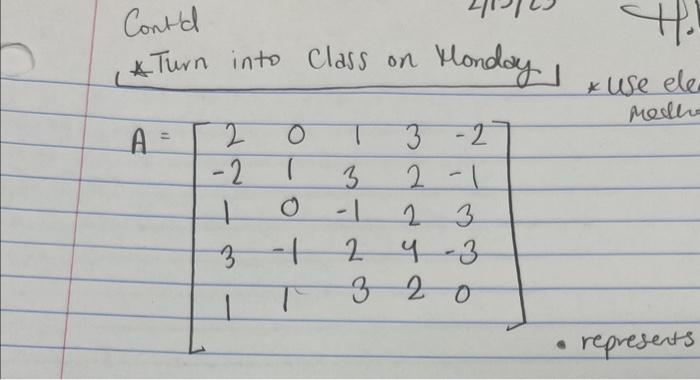 Cont'd
2/13/23
* Turn into Class on Monday
* use
A = 2 0 1 3 -2
-2 1 3 2 -1
1 0 -1 2 3
3 -1 2 4 -3
1 1 3 2 0
• represents